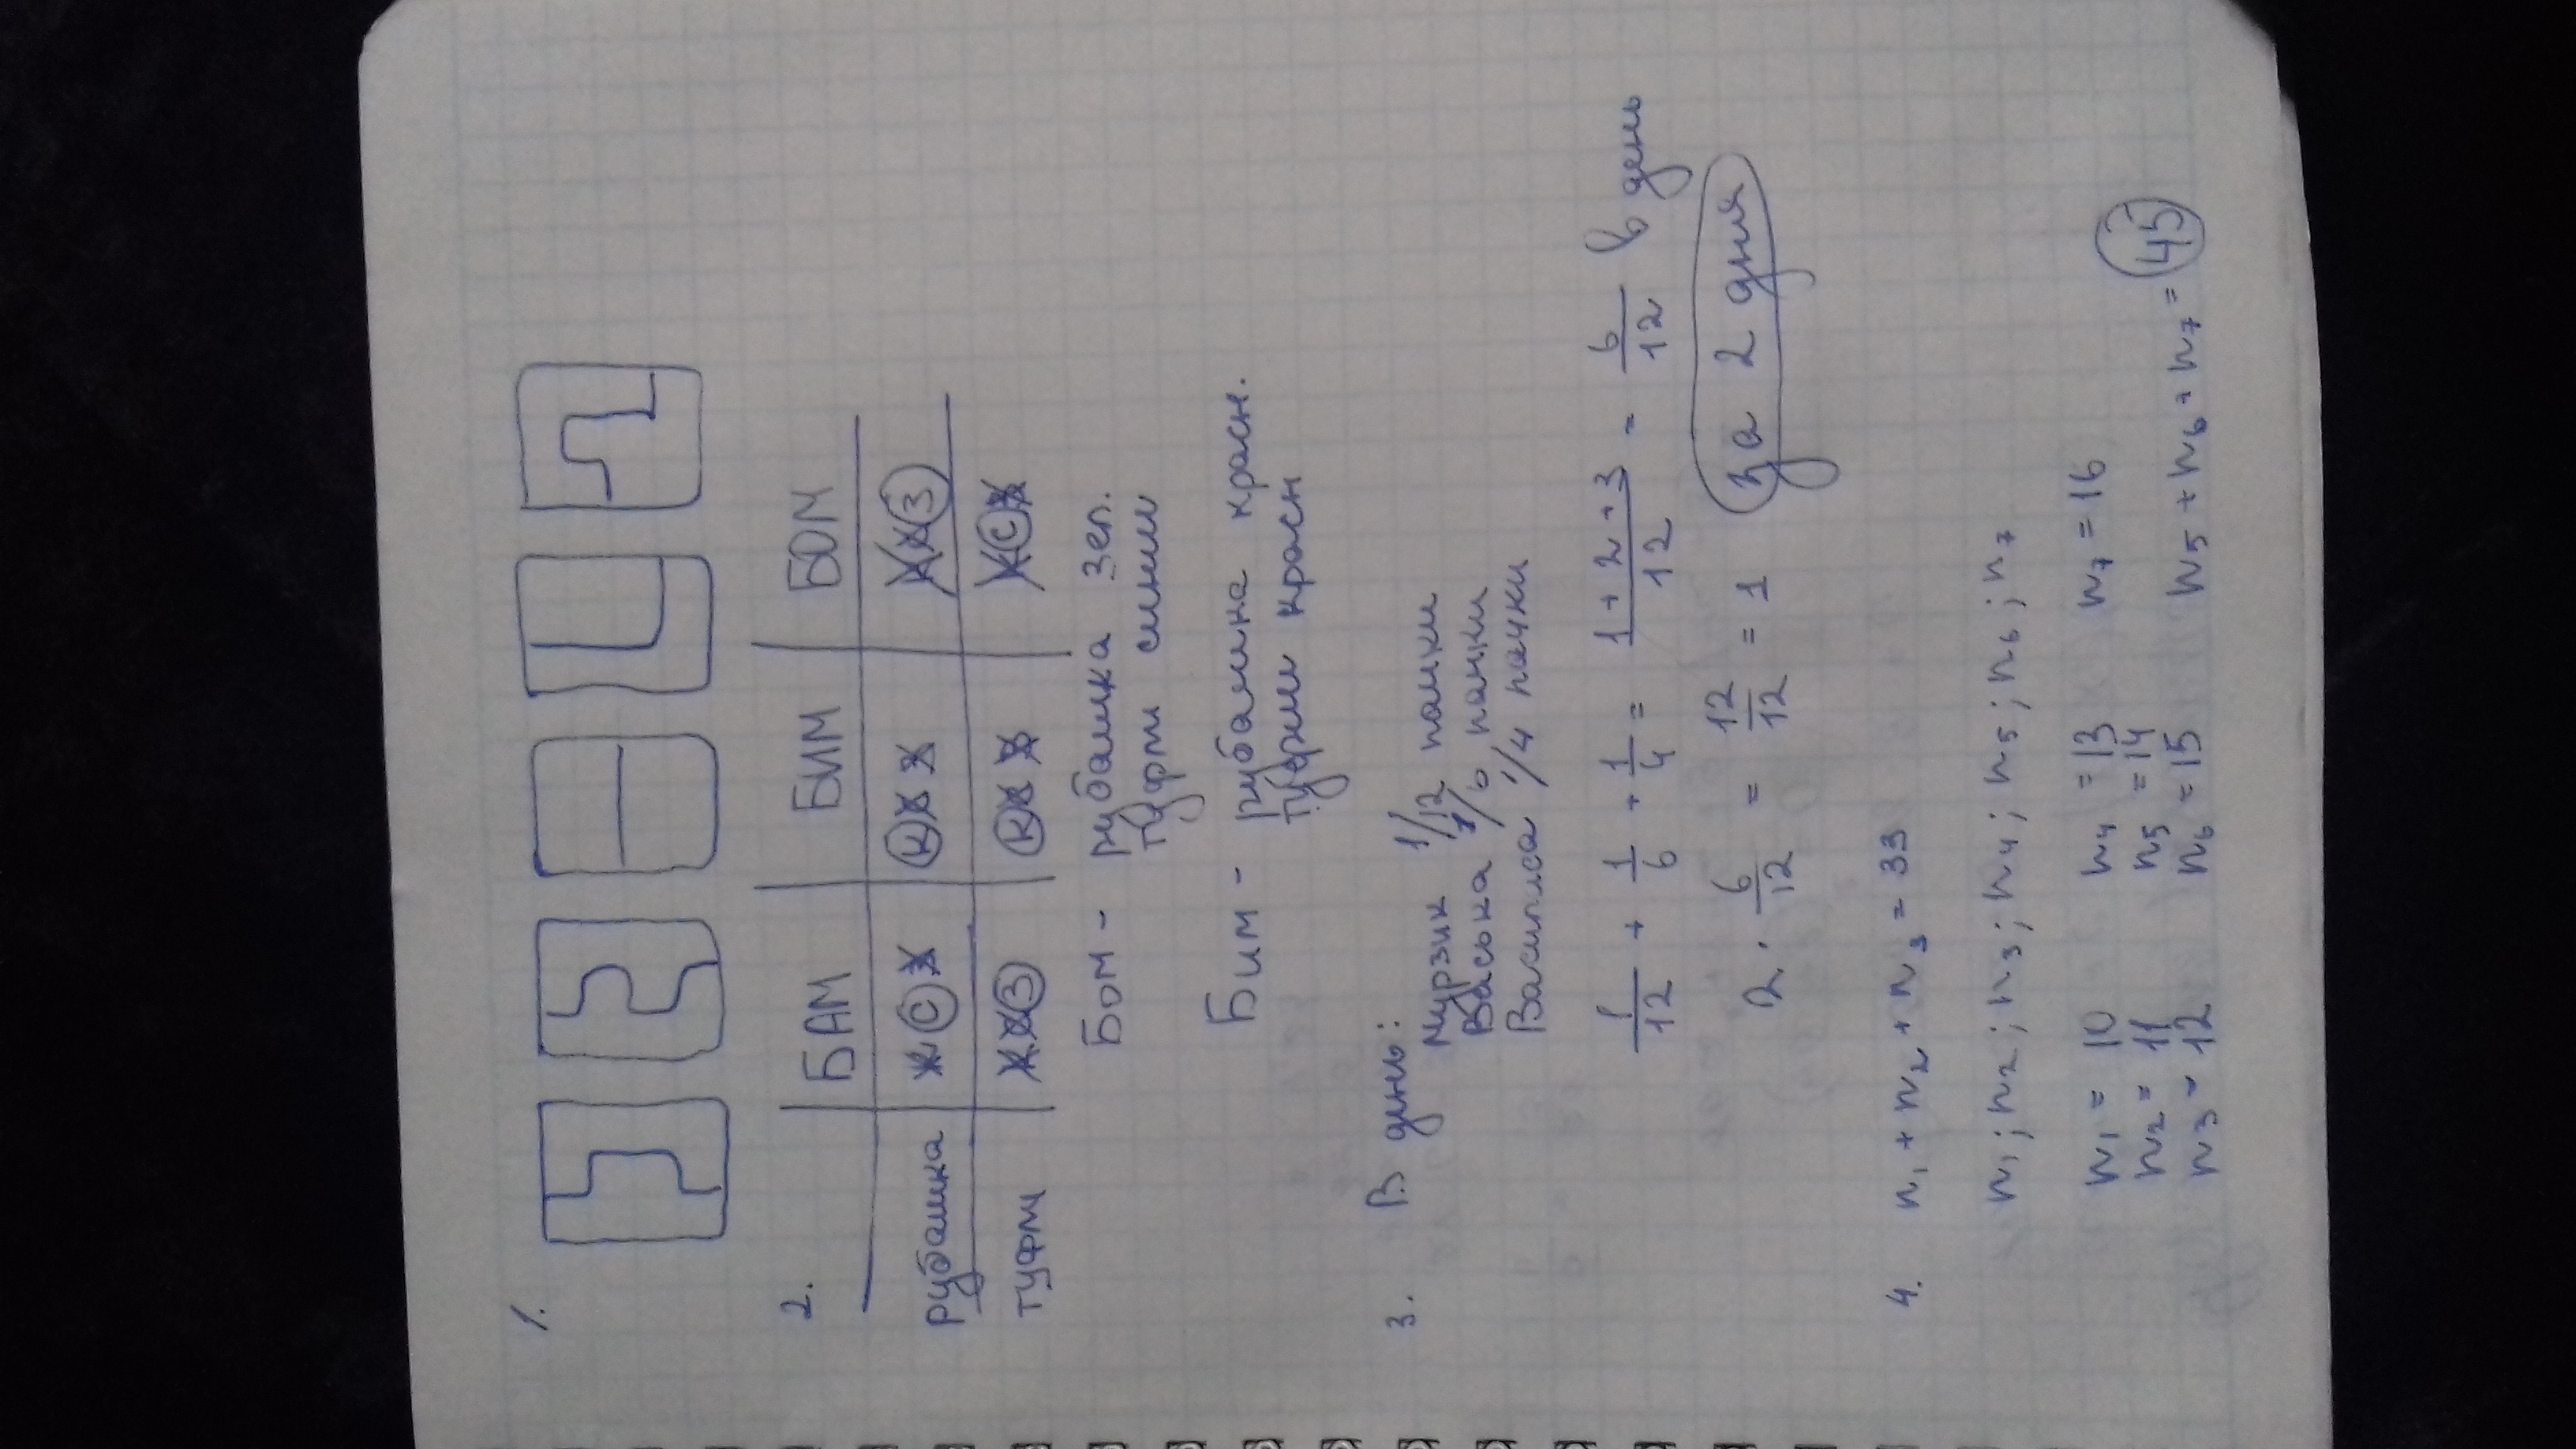 1.
2.
БАМ БИМ БОМ
рубашка К С З К С З К С З
туфли К С З К С З К С З
Бом - рубашка зел.
туфли синии
Бим - рубашка красн.
туфли красн
3. В день:
Мурзик 1/12 пачки
Васька 1/6 пачки
Василиса 1/4 пачки
1/12 + 1/6 + 1/4 = (1+2+3)/12 = 6/12 в день
2 · 6/12 = 12/12 = 1 за 2 дня
4. n₁ + n₂ + n₃ = 33
n₁; n₂; n₃; n₄; n₅; n₆; n₇
n₁ = 10 n₄ = 13 n₇ = 16
n₂ = 11 n₅ = 14
n₃ = 12 n₆ = 15
n₅ + n₆ + n₇ = 45